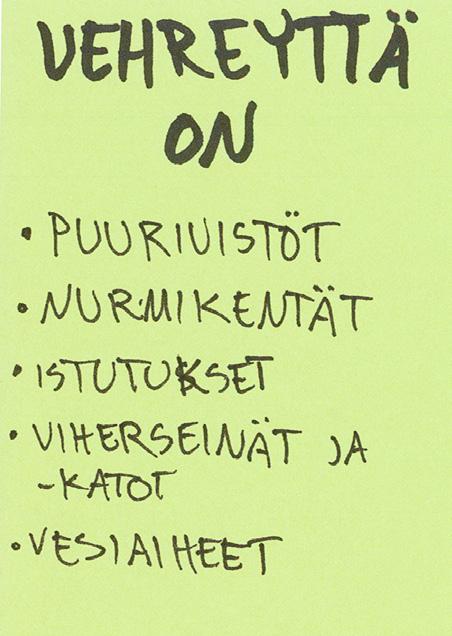 VEHREYTTÄ
ON
• PUURIVISTÖT
• NURMIKENTÄT
• ISTUTUKSET
• VIHERSEINÄT JA
-KATOT
• VESIAIHEET